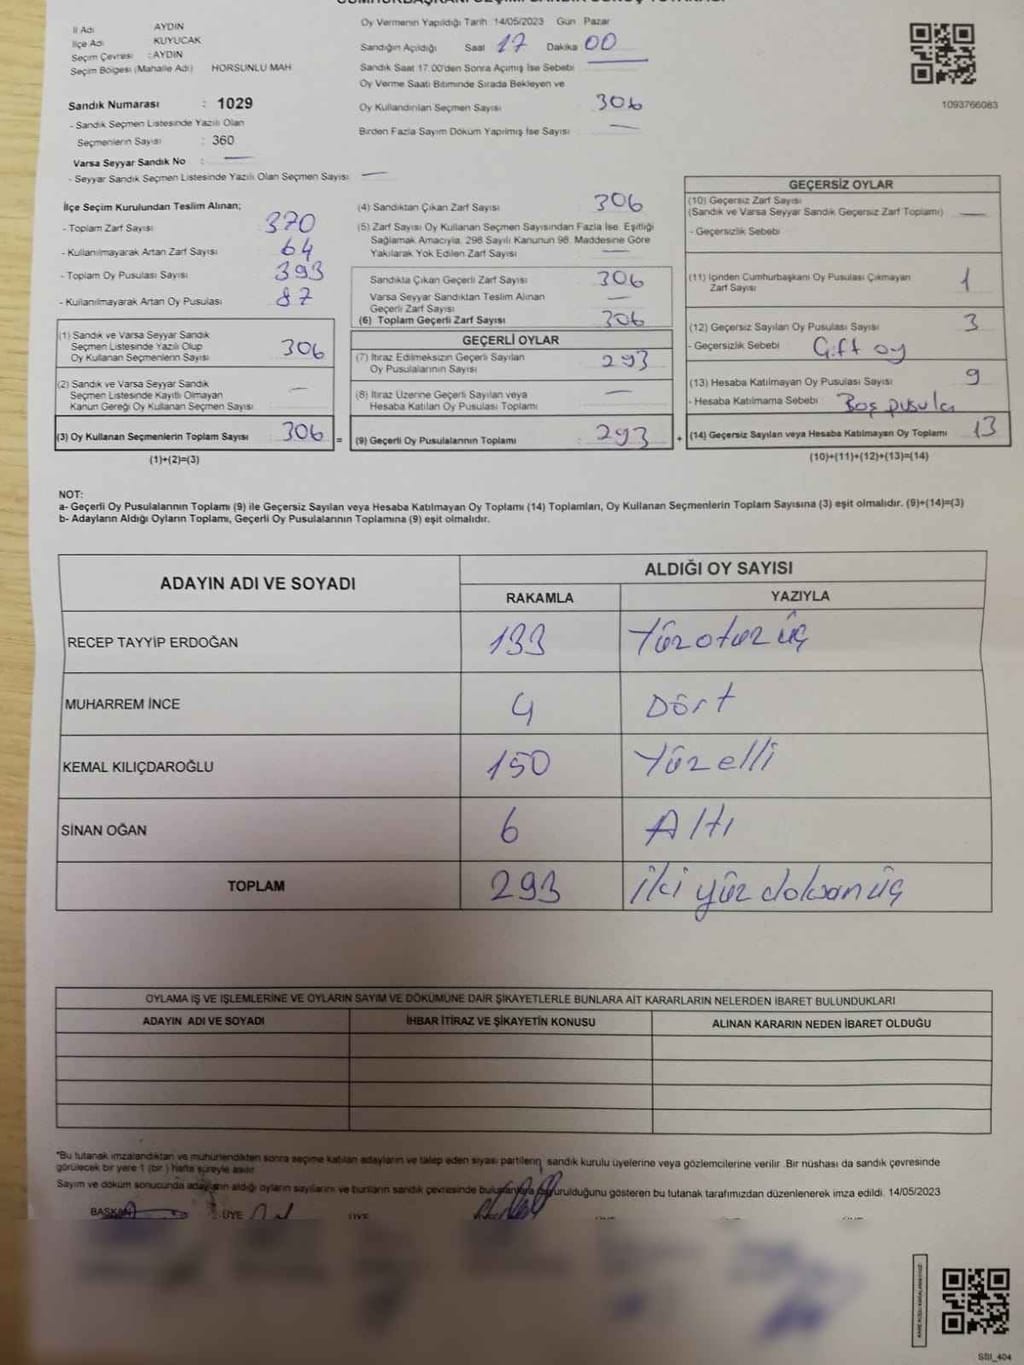 İl Adı AYDIN
İlçe Adı KUYUCAK
Seçim Çevresi : AYDIN
Seçim Bölgesi (Mahalle Adı) HORSUNLU MAH
Sandık Numarası : 1029
- Sandık Seçmen Listesinde Yazılı Olan
Seçmenlerin Sayısı : 360
Varsa Seyyar Sandık No : —
- Seyyar Sandık Seçmen Listesinde Yazılı Olan Seçmen Sayısı —
Oy Vermenin Yapıldığı Tarih 14/05/2023 Gün Pazar
Sandığın Açıldığı Saat 17 Dakika 00
Sandık Saat 17.00'den Sonra Açımış İse Sebebi —
Oy Verme Saati Bitiminde Sırada Bekleyen ve
Oy Kullandırılan Seçmen Sayısı 306
Birden Fazla Sayım Döküm Yapılmış İse Sayısı —
1093766083
İlçe Seçim Kurulundan Teslim Alınan;
- Toplam Zarf Sayısı 370
- Kullanılmayarak Artan Zarf Sayısı 64
- Toplam Oy Pusulası Sayısı 393
- Kullanılmayarak Artan Oy Pusulası 87
(1) Sandık ve Varsa Seyyar Sandık
Seçmen Listesinde Yazılı Olup
Oy Kullanan Seçmenlerin Sayısı 306
(2) Sandık ve Varsa Seyyar Sandık
Seçmen Listesinde Kayıtlı Olmayan
Kanun Gereği Oy Kullanan Seçmen Sayısı —
(3) Oy Kullanan Seçmenlerin Toplam Sayısı 306 =
(1)+(2)=(3)
(4) Sandıktan Çıkan Zarf Sayısı 306
(5) Zarf Sayısı Oy Kullanan Seçmen Sayısından Fazla İse, Eşitliği
Sağlamak Amacıyla, 298 Sayılı Kanunun 98. Maddesine Göre
Yakılarak Yok Edilen Zarf Sayısı —
Sandıkta Çıkan Geçerli Zarf Sayısı 306
Varsa Seyyar Sandıktan Teslim Alınan
Geçerli Zarf Sayısı —
(6) Toplam Geçerli Zarf Sayısı 306
GEÇERLİ OYLAR
(7) İtiraz Edilmeksizin Geçerli Sayılan
Oy Pusulalarının Sayısı 293
(8) İtiraz Üzerine Geçerli Sayılan veya
Hesaba Katılan Oy Pusulası Toplamı —
(9) Geçerli Oy Pusulalarının Toplamı : 293 +
GEÇERSİZ OYLAR
(10) Geçersiz Zarf Sayısı
(Sandık ve Varsa Seyyar Sandık Geçersiz Zarf Toplamı) —
- Geçersizlik Sebebi
(11) İçinden Cumhurbaşkanı Oy Pusulası Çıkmayan
Zarf Sayısı 1
(12) Geçersiz Sayılan Oy Pusulası Sayısı 3
- Geçersizlik Sebebi Çift oy
(13) Hesaba Katılmayan Oy Pusulası Sayısı 9
- Hesaba Katılmama Sebebi Boş pusula
(14) Geçersiz Sayılan veya Hesaba Katılmayan Oy Toplamı 13
(10)+(11)+(12)+(13)=(14)
NOT:
a- Geçerli Oy Pusulalarının Toplamı (9) ile Geçersiz Sayılan veya Hesaba Katılmayan Oy Toplamı (14) Toplamları, Oy Kullanan Seçmenlerin Toplam Sayısına (3) eşit olmalıdır. (9)+(14)=(3)
b- Adayların Aldığı Oyların Toplamı, Geçerli Oy Pusulalarının Toplamına (9) eşit olmalıdır.
ADAYIN ADI VE SOYADI ALDIĞI OY SAYISI
RAKAMLA YAZIYLA
RECEP TAYYİP ERDOĞAN 133 Yüzotuz üç
MUHARREM İNCE 4 Dört
KEMAL KILIÇDAROĞLU 150 Yüzelli
SİNAN OĞAN 6 Altı
TOPLAM 293 iki yüz doksan üç
OYLAMA İŞ VE İŞLEMLERİNE VE OYLARIN SAYIM VE DÖKÜMÜNE DAİR ŞİKAYETLERLE BUNLARA AİT KARARLARIN NELERDEN İBARET BULUNDUKLARI
ADAYIN ADI VE SOYADI İHBAR İTİRAZ VE ŞİKAYETİN KONUSU ALINAN KARARIN NEDEN İBARET OLDUĞU
"Bu tutanak imzalandıktan ve mühürlendikten sonra seçime katılan adayların ve talep eden siyasi partilerin sandık kurulu üyelerine veya gözlemcilerine verilir. Bir nüshası da sandık çevresinde
görülecek bir yere 1 (bir) hafta süreyle asılır.
Sayım ve döküm sonucunda adayların aldığı oyların sayılarını ve bunların sandık çevresinde duyurulduğunu gösteren bu tutanak tarafımızdan düzenlenerek imza edildi. 14/05/2023
BAŞKAN ÜYE ÜYE
SSI_404